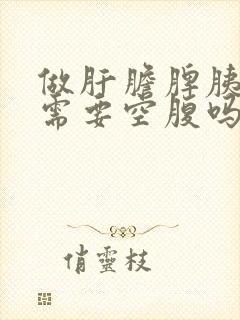 做肝膽脾胰
需要空腹吗
俏靈枝